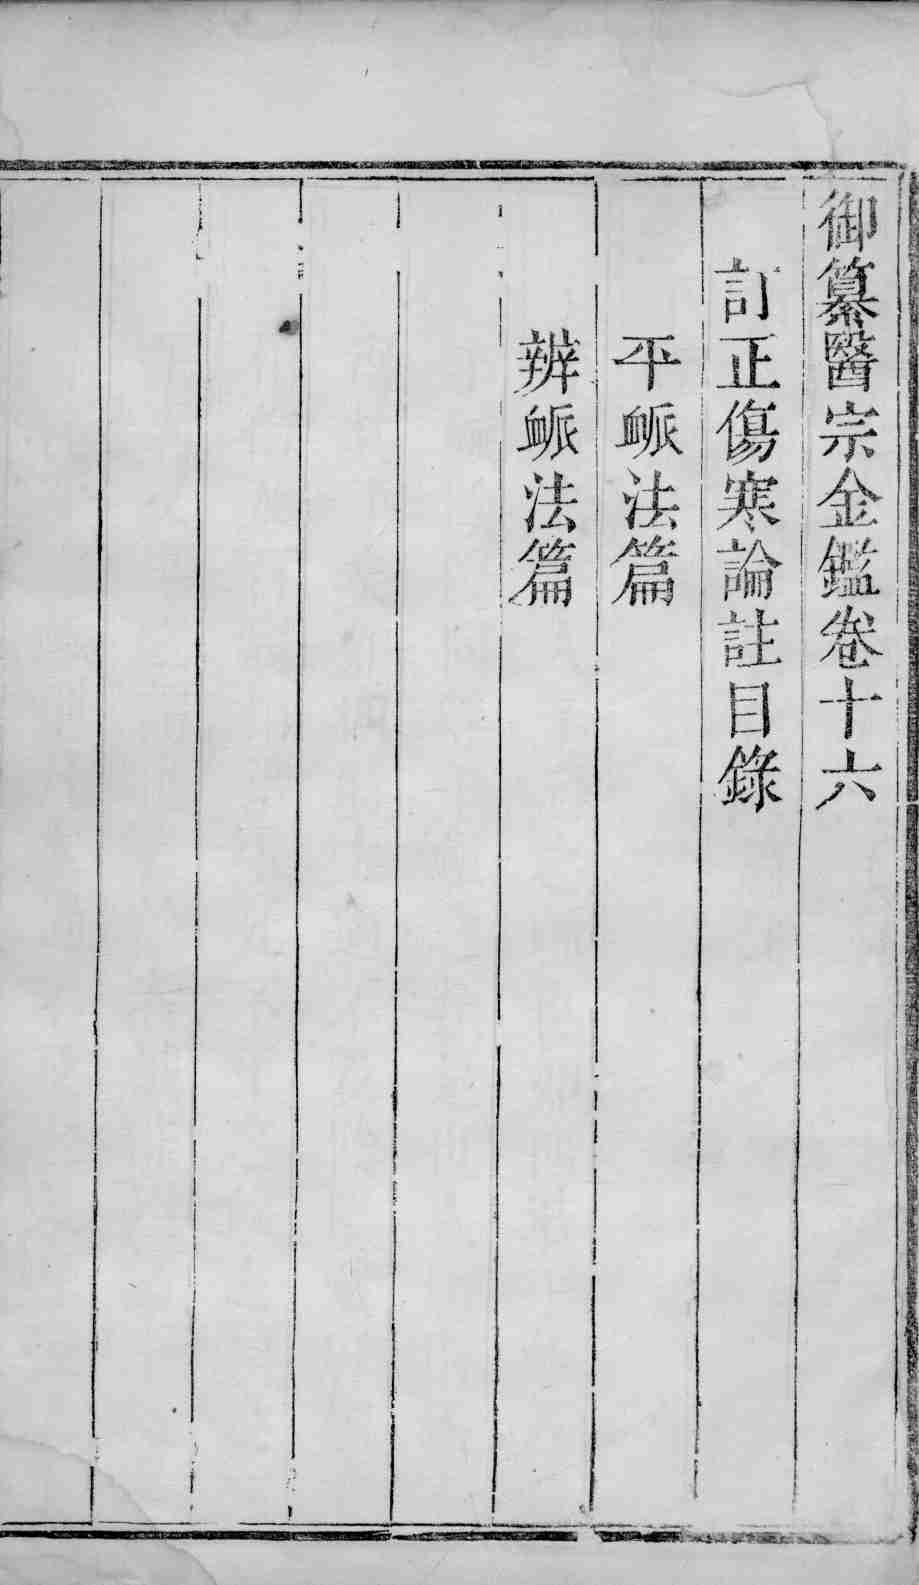 御纂醫宗金鑑卷十六
訂正傷寒論註目錄
平衇法篇
辨衇法篇